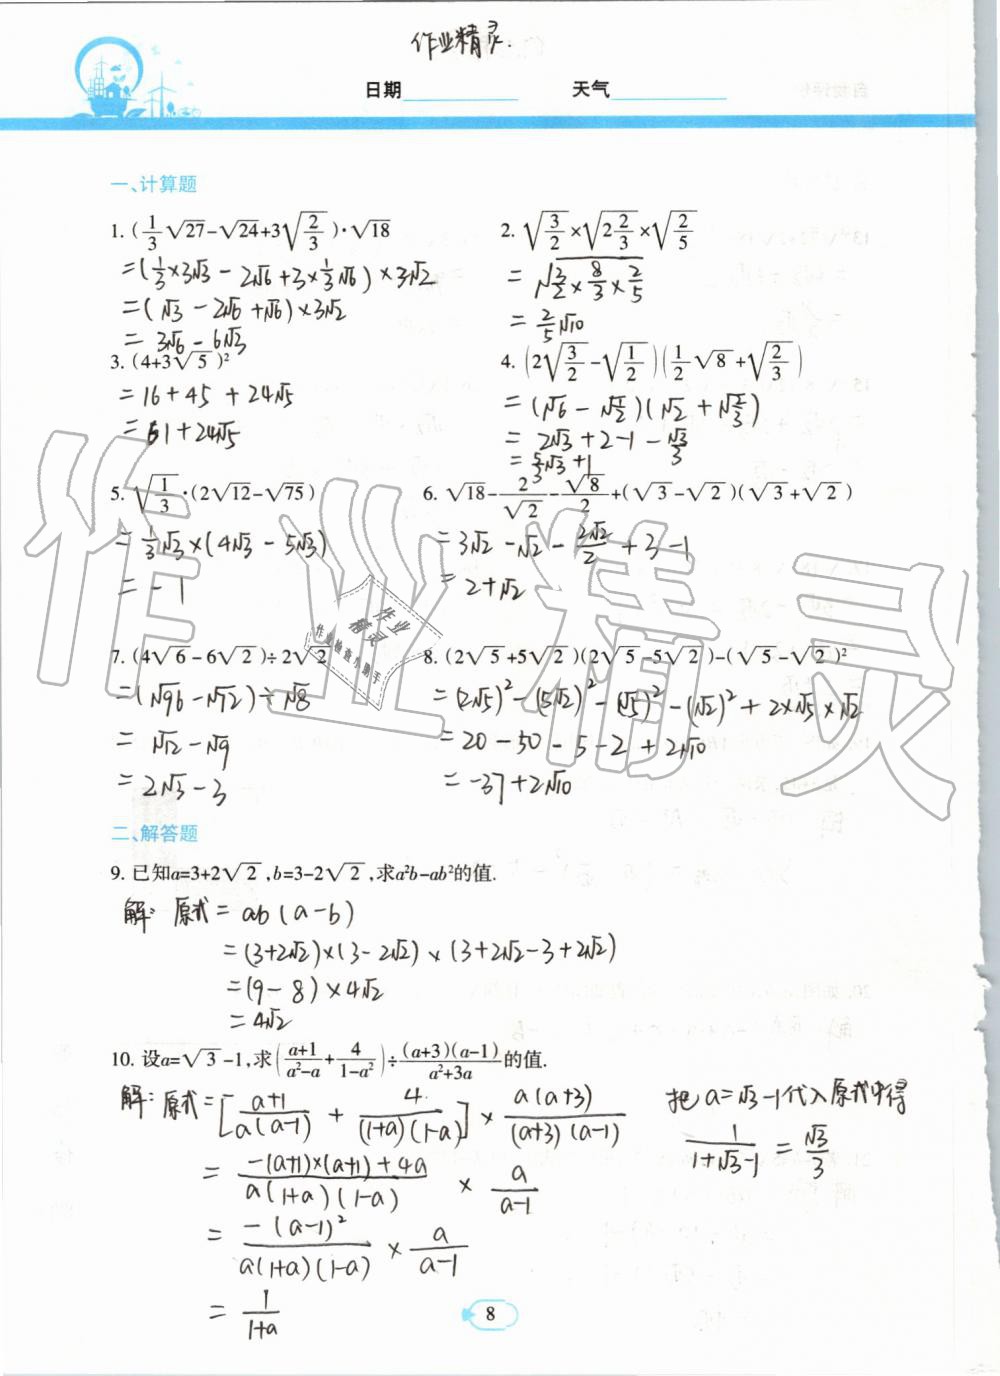 作业精灵.
日期 天气
一、计算题
1. (1/3√27-√24+3√(2/3))·√18
=(1/3×3√3-2√6+3×1/3√6)×3√2
=(√3-2√6+√6)×3√2
=3√6-6√3
2. √(3/2)×√(2 2/3)×√(2/5)
=√(3/2×8/3×2/5)
=2/5√10
3. (4+3√5)²
=16+45+24√5
=61+24√5
4. (2√(3/2)-√(1/2))(1/2√8+√(2/3))
=(√6-√2/2)(√2+√(2/3))
=2√3+2-1-√3/3
=5/3√3+1
5. √(1/3)·(2√12-√75)
=1/3√3×(4√3-5√3)
=-1
6. √18-2/√2-√8/2+(√3-√2)(√3+√2)
=3√2-√2-2√2/2+3-1
=2+√2
7. (4√6-6√2)÷2√2
=(√96-√72)÷√8
=√12-√9
=2√3-3
8. (2√5+5√2)(2√5-5√2)-(√5-√2)²
=(2√5)²-(5√2)²-(√5)²-(√2)²+2×√5×√2
=20-50-5-2+2√10
=-37+2√10
二、解答题
9. 已知a=3+2√2,b=3-2√2,求a²b-ab²的值.
解:原式=ab(a-b)
=(3+2√2)×(3-2√2)×(3+2√2-3+2√2)
=(9-8)×4√2
=4√2
10. 设a=√3-1,求((a+1)/(a²-a)+4/(1-a²))÷((a+3)(a-1))/(a²+3a)的值.
解:原式=[(a+1)/(a(a-1))+4/((1+a)(1-a))]×(a(a+3))/((a+3)(a-1))
=(-(a+1)×(a+1)+4a)/(a(1+a)(1-a))×a/(a-1)
=(-(a-1)²)/(a(1+a)(1-a))×a/(a-1)
=1/(1+a)
把a=√3-1代入原式中得
1/(1+√3-1)=√3/3
8
作业精灵
作业
精灵
作业检查小助手